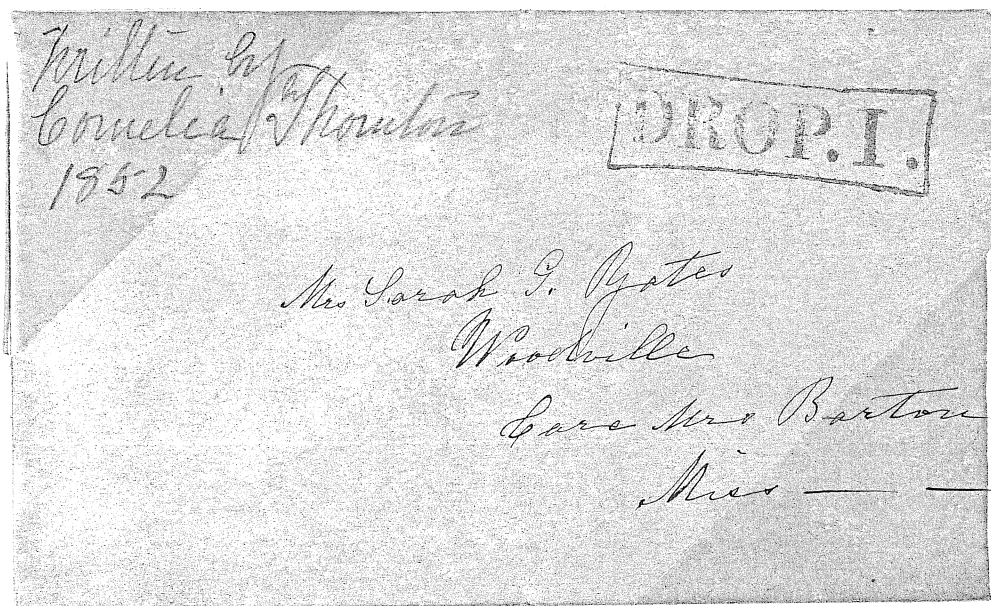 Written by
Cornelia Thornton
1852
DROP. 1.
Mrs Sarah G. Yates
Woodville
Care Mrs Barton
Miss